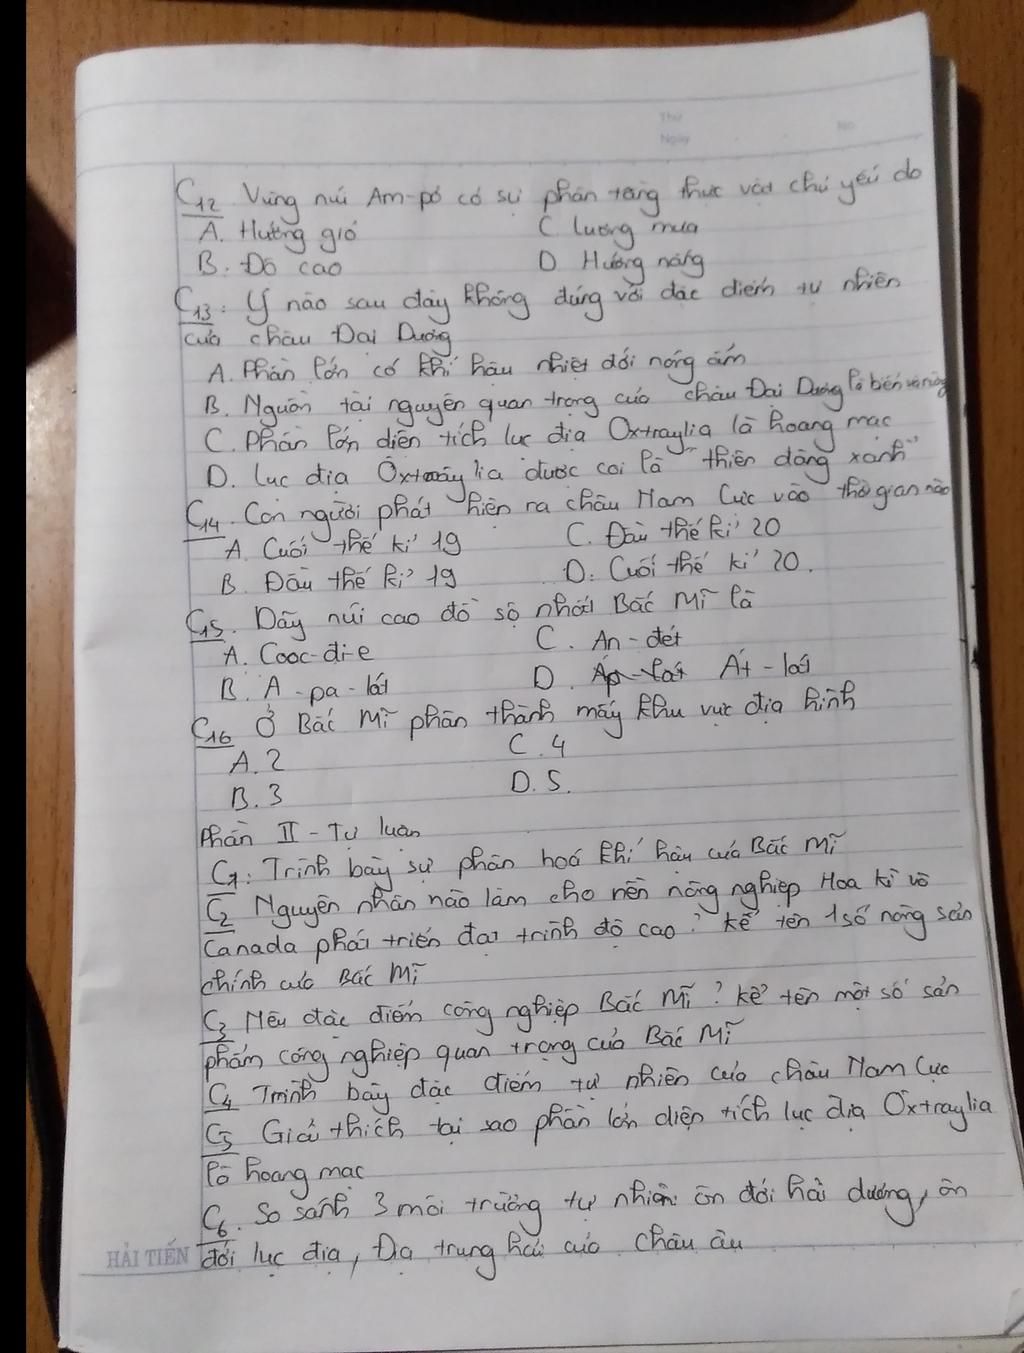 Thứ
Ngày No.
C12 Vùng núi Am-pơ có sự phân tầng thực vật chủ yếu do
A. Hướng gió C. lượng mưa
B. Độ cao D. Hướng nắng
C13: Ý nào sau đây không đúng với đặc điểm tự nhiên
của châu Đại Dương
A. Phần lớn có khí hậu nhiệt đới nóng ẩm
B. Nguồn tài nguyên quan trọng của châu Đại Dương là biển và rừng
C. Phần lớn diện tích lục địa Oxtraylia là hoang mạc
D. Lục địa Ôxtraylia được coi là "thiên đàng xanh"
C14. Con người phát hiện ra châu Nam Cực vào thời gian nào
A. Cuối thế kỉ 19 C. Đầu thế kỉ 20
B. Đầu thế kỉ 19 D. Cuối thế kỉ 20.
C15. Dãy núi cao đồ sộ nhất Bắc Mĩ là
A. Cooc-đi-e C. An-đét
B. A-pa-lát D. Át-lát
C16 Ở Bắc Mĩ phân thành mấy khu vực địa hình
A. 2 C. 4
B. 3 D. 5.
Phần II - Tự luận
C1: Trình bày sự phân hoá khí hậu của Bắc Mĩ
C2 Nguyên nhân nào làm cho nền nông nghiệp Hoa kì và
Canada phát triển đạt trình độ cao? kể tên 1 số nông sản
chính của Bắc Mĩ
C3 Nêu đặc điểm công nghiệp Bắc Mĩ? kể tên một số sản
phẩm công nghiệp quan trọng của Bắc Mĩ
C4 Trình bày đặc điểm tự nhiên của châu Nam Cực
C5 Giải thích tại sao phần lớn diện tích lục địa Ôxtraylia
là hoang mạc
C6. So sánh 3 môi trường tự nhiên: ôn đới hải dương, ôn
đới lục địa, Địa trung hải của châu âu
HẢI TIẾN